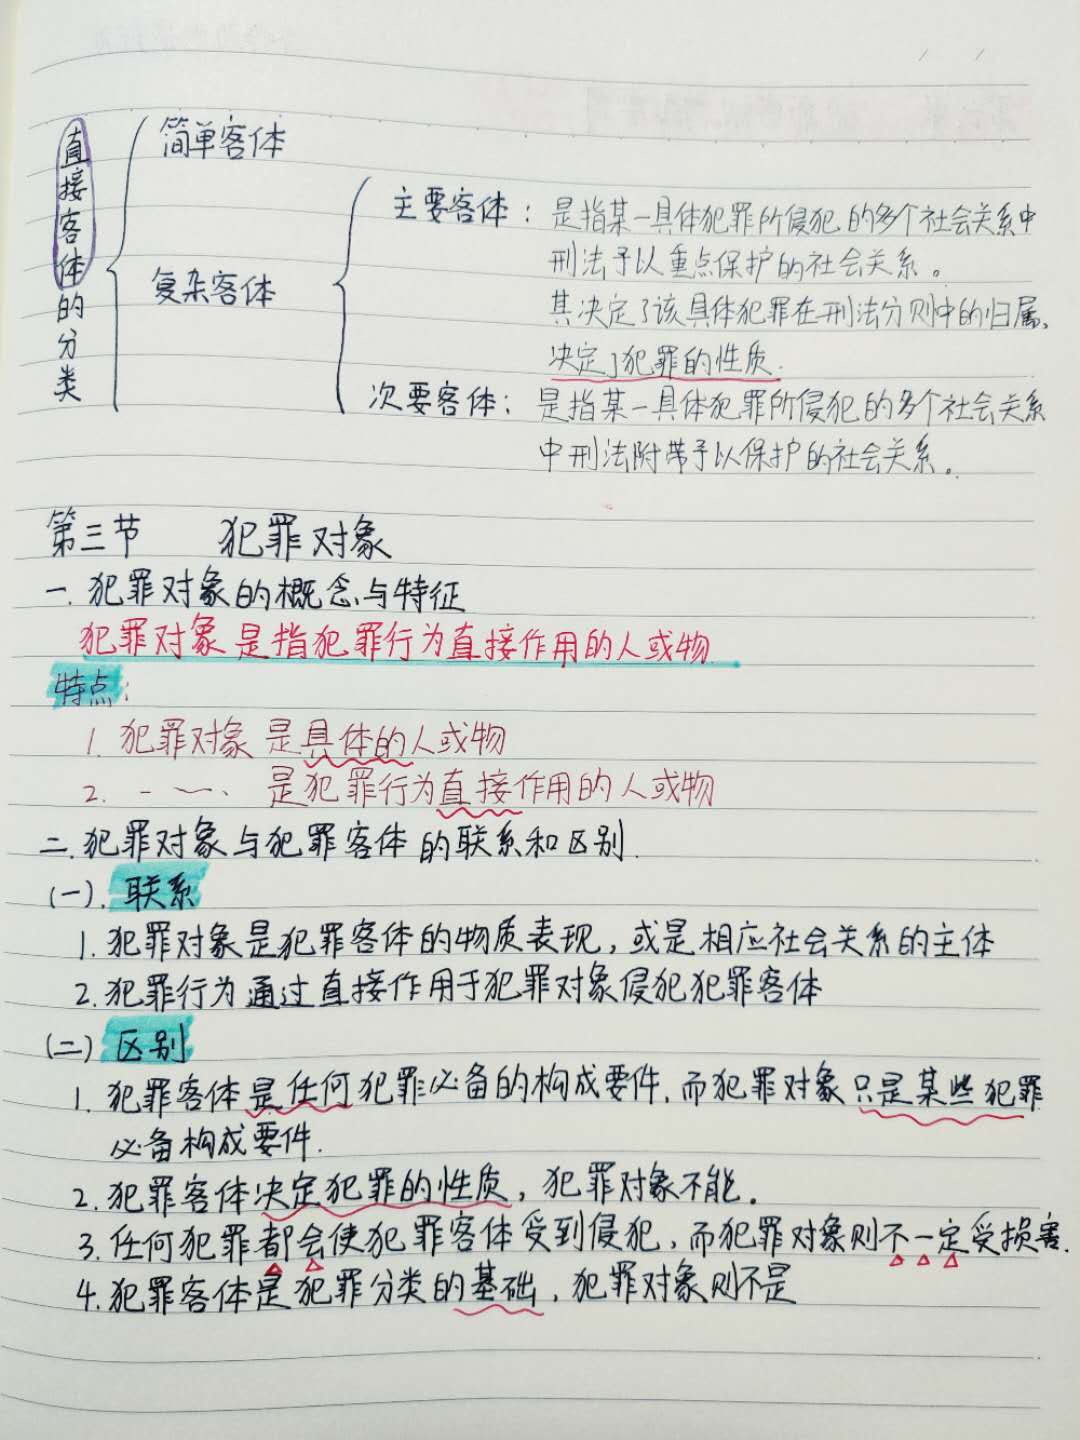 直接客体的分类
简单客体
复杂客体
主要客体：是指某一具体犯罪所侵犯的多个社会关系中
刑法予以重点保护的社会关系。
其决定了该具体犯罪在刑法分则中的归属、
决定了犯罪的性质.
次要客体：是指某一具体犯罪所侵犯的多个社会关系
中刑法附带予以保护的社会关系。
第三节 犯罪对象
一. 犯罪对象的概念与特征
犯罪对象是指犯罪行为直接作用的人或物.
特点：
1. 犯罪对象是具体的人或物
2. - ~ 、 是犯罪行为直接作用的人或物
二. 犯罪对象与犯罪客体的联系和区别.
(一). 联系
1. 犯罪对象是犯罪客体的物质表现，或是相应社会关系的主体
2. 犯罪行为通过直接作用于犯罪对象侵犯犯罪客体
(二) 区别
1. 犯罪客体是任何犯罪必备的构成要件, 而犯罪对象只是某些犯罪
必备构成要件.
2. 犯罪客体决定犯罪的性质，犯罪对象不能。
3. 任何犯罪都会使犯罪客体受到侵犯，而犯罪对象则不一定受损害.
4. 犯罪客体是犯罪分类的基础，犯罪对象则不是